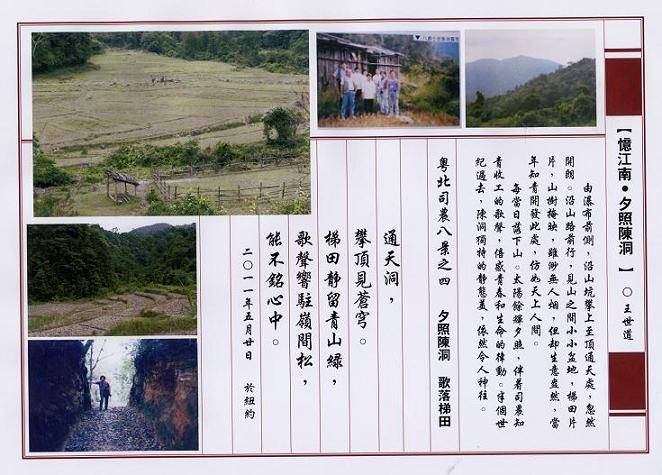 【憶江南·夕照陳洞】 ○王世道
由瀑布前側，沿山坑攀上至頂通天處，忽然
開朗。沿山路前行，見山之間小小盆地，梯田片
片，山樹掩映，雖渺無人烟，但却生意盎然，當
年知青開發此處，仿如天上人間。
每當日落下山。太陽餘輝夕照，伴着司農知
青收工的歌聲，倍感青春和生命的律動。半個世
紀過去，陳洞獨特的静態美，依然令人神往。
粤北司農八景之四 夕照陳洞 歌落梯田
通天洞，
攀頂見蒼穹。
梯田静留青山綠，
歌聲響駐嶺間松，
能不銘心中。
二〇一一年五月廿日 於紐約